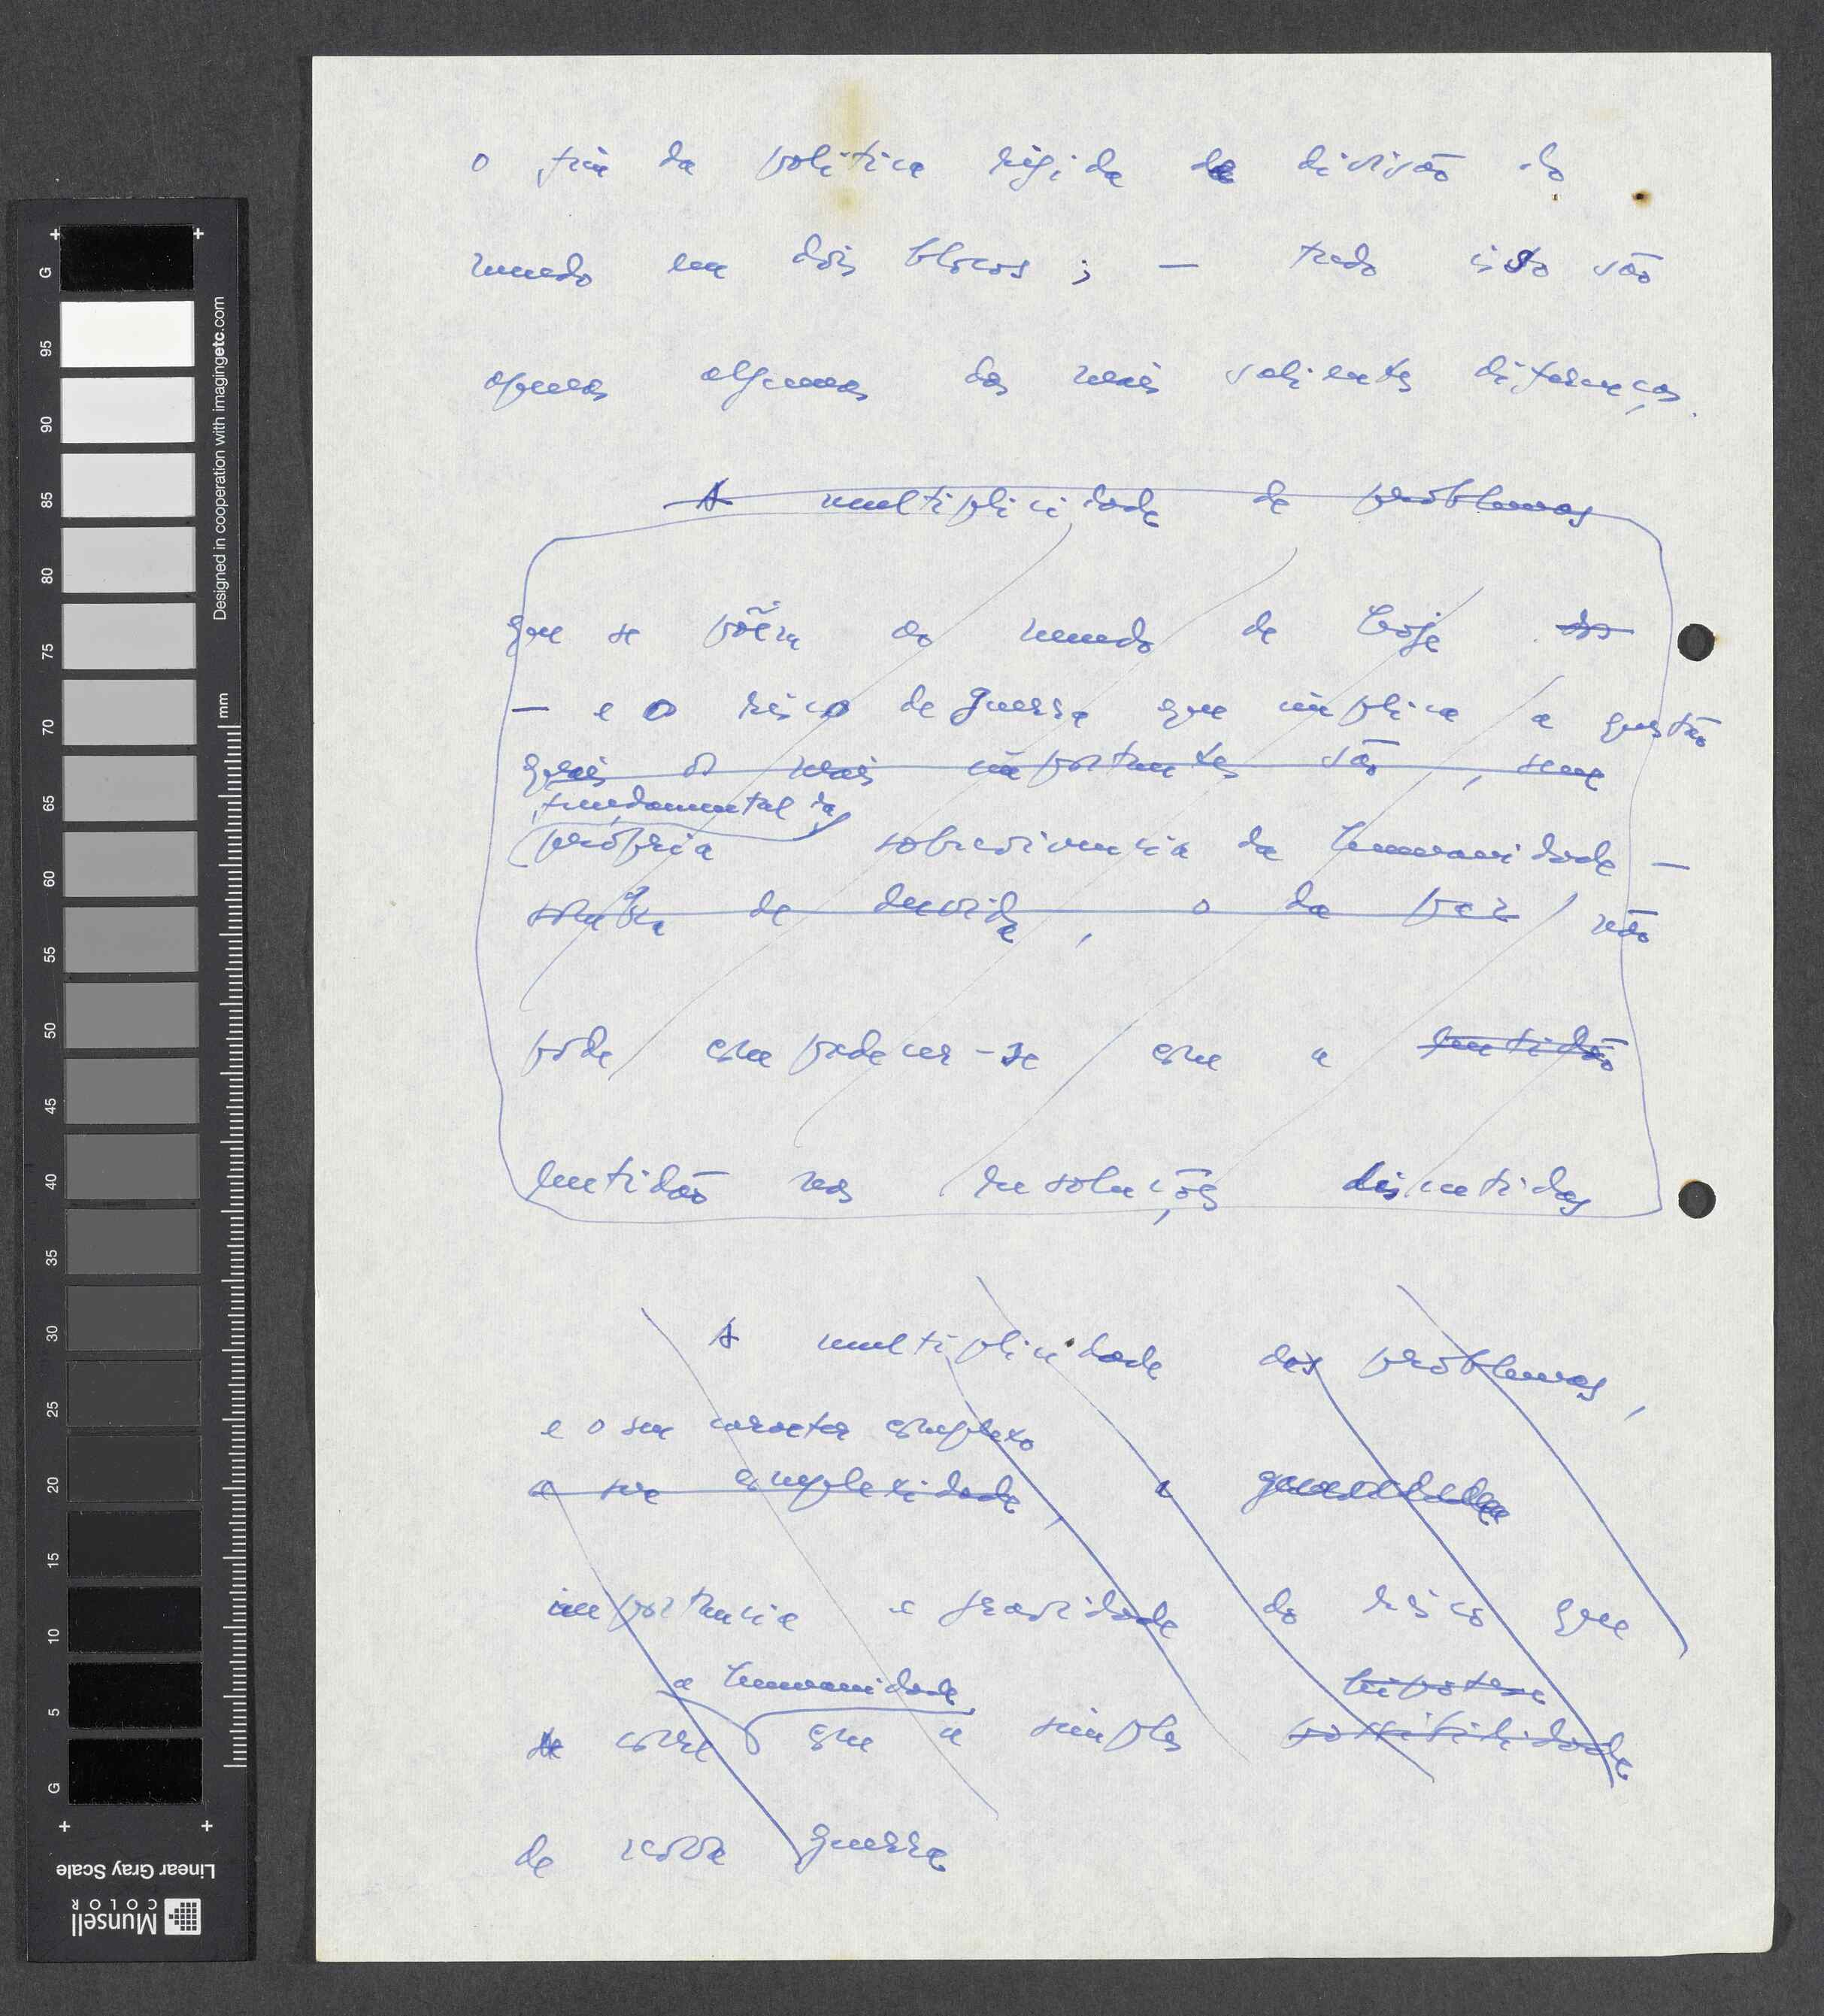 o fim da politica rigida de divisão do
mundo em dois blocos ; — tudo isto são
apenas algumas das mais salientes diferenças.
A multiplicidade de problemas
que se põem ao mundo de hoje
— e o risco de guerra que implica a questão
quais os mais importantes são, sem
fundamental da
própria sobrevivencia da humanidade —
sombra de duvida, o da paz não
pode compadecer-se com a lentidão
lentidão nas resoluções discutidas
A multiplicidade dos problemas,
e o seu caracter complexo
a sua complexidade, a
importancia e gravidade do risco que
a humanidade hipotese
corre com a simples possibilidade
de nova guerra
G 95 90 85 80 75 70 65 60 55 50 45 40 35 30 25 20 15 10 5 G
mm
Designed in cooperation with imagingetc.com
Linear Gray Scale
Munsell
COLOR